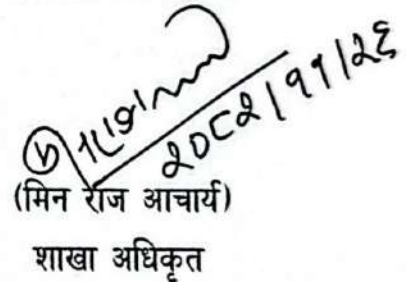 २०८२/११/२६
(मिन राज आचार्य)
शाखा अधिकृत